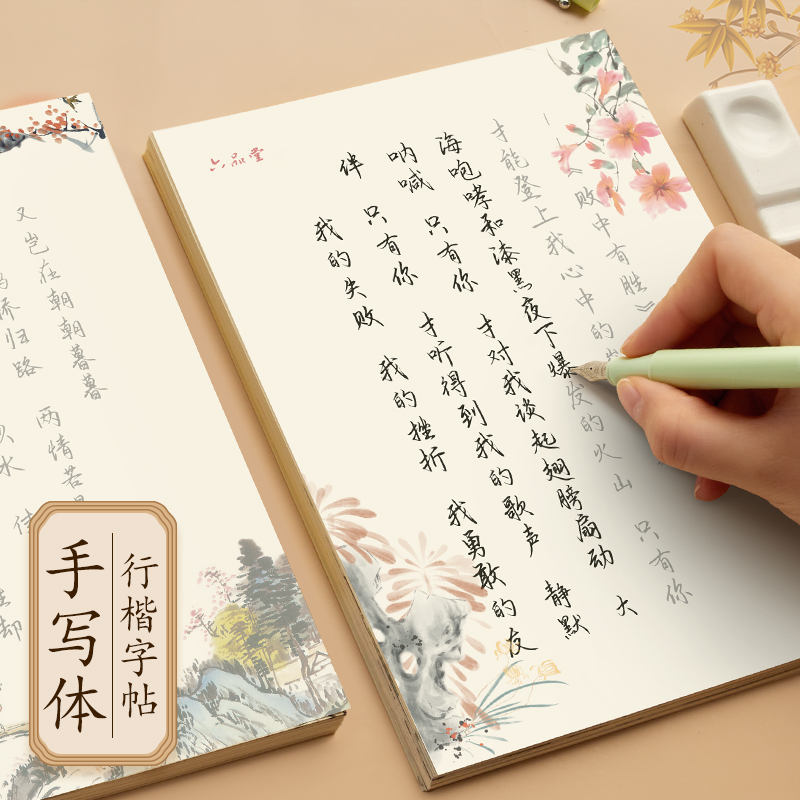 手写体
行楷字帖
六品堂
我的失败 我的挫折 我勇敢的友
伴 只有你 才听得到我的歌声 静默
呐喊 只有你 才对我谈起翅膀扇动 大
海咆哮和漆黑夜下爆发的火山 只有你
才能登上我心中的
——《败中有胜》
水
桥归路 两情若
又岂在朝朝暮暮